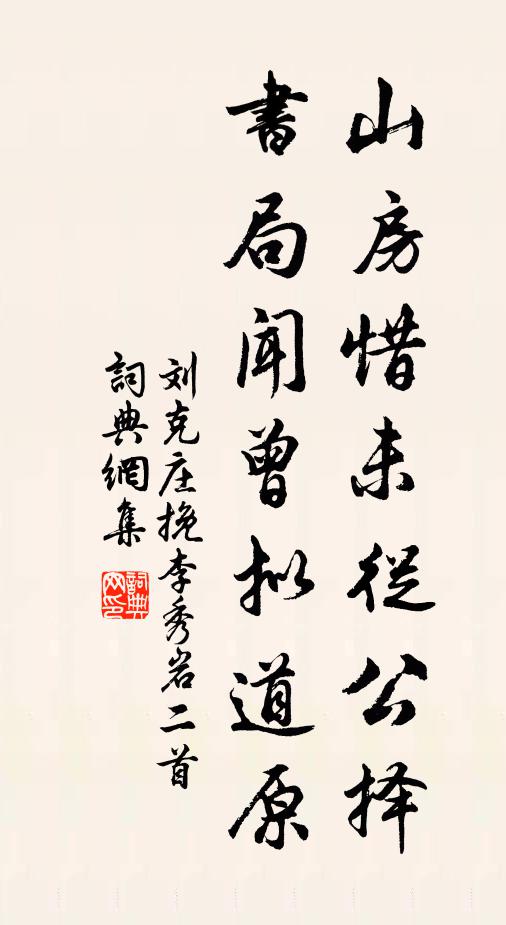 山房惜未従公择
書局闻曾拟道原
刘克庄挽李秀岩二首
詞典網集
詞典网印